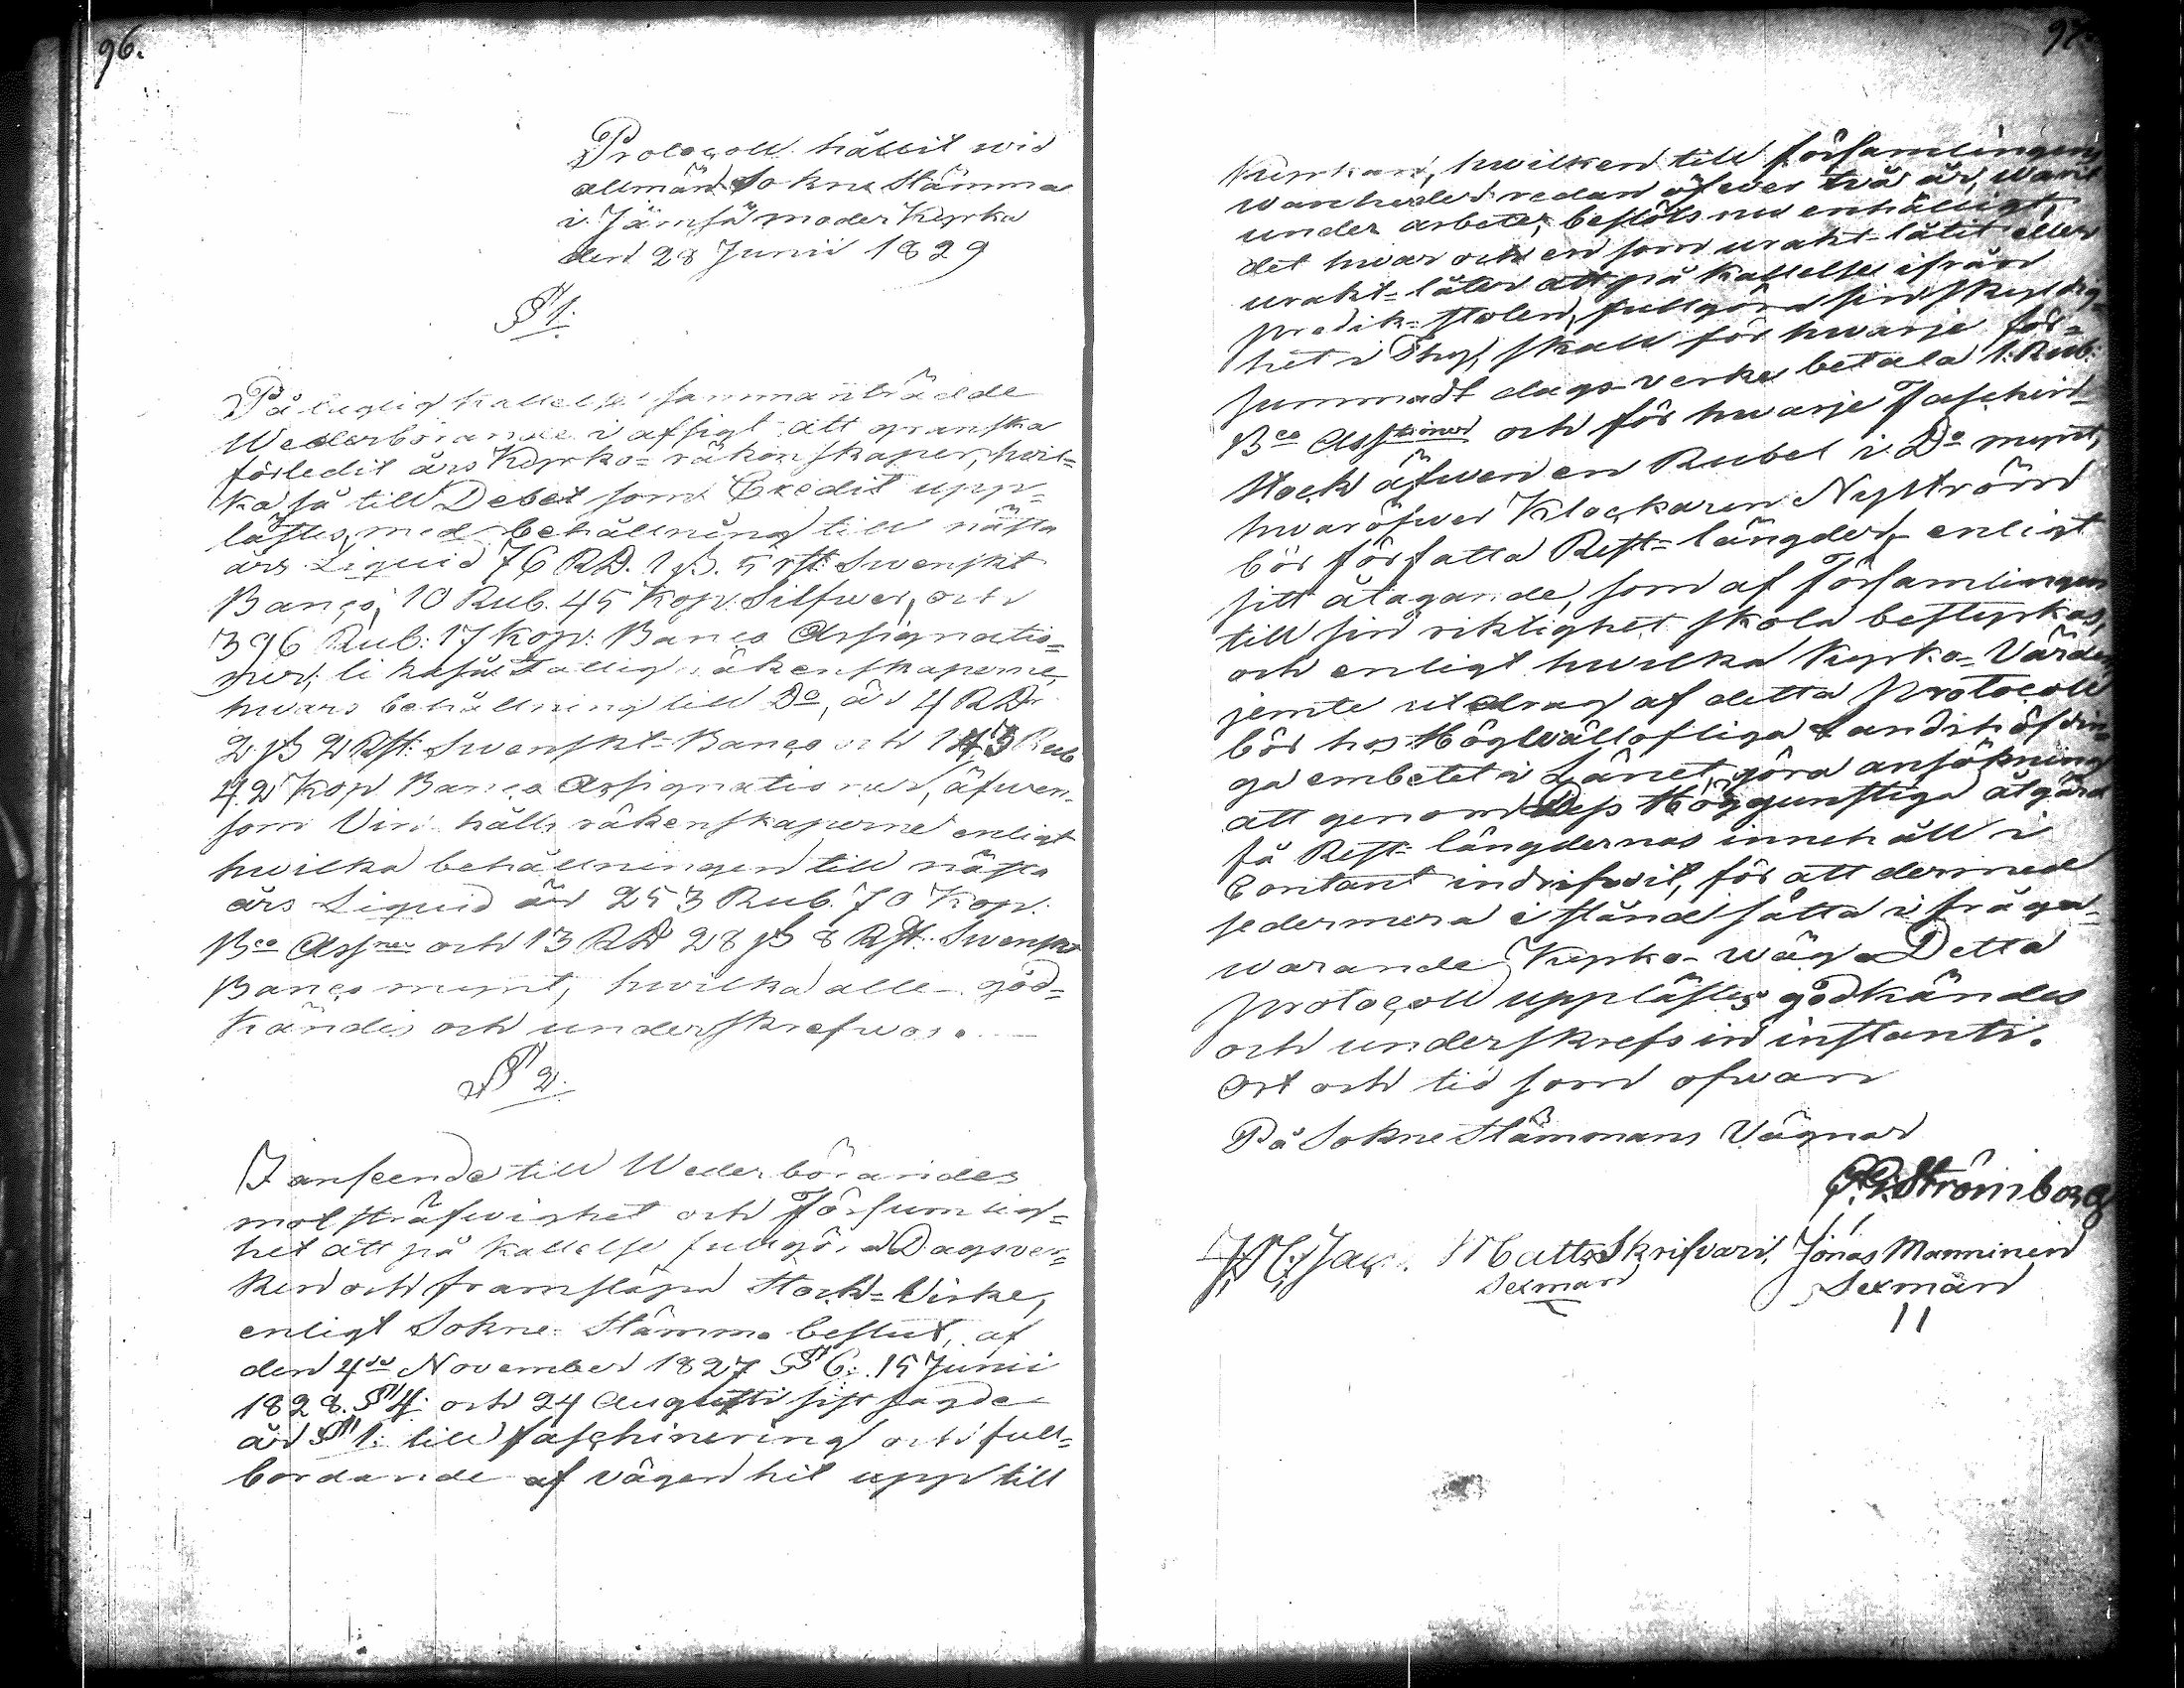 96.
Protocoll hållit wid
allmän Sokne Stämma
i Jämsä moder Kyrka
den 28 Junii 1829
§ 1.
På laglig kallelse sammanträdde
Wederbörande i afsigt att granska
förledit års Kyrko=räkenskaper, hvil=
ka så till Debet som Credit upp=
lästes, med behållning till nästa
års Liquid 76 RD. 1 ß. 5 rst: Swenskt
Banco, 10 Rub. 45 Kop. Silfwer, och
396 Rub: 17 Kop: Banco Assignatio=
ner; likaså Fattig räkenskaperne,
hwars behållning till Do, är 4 RDr
2 ß 2 Rst: Swenskt=Banco och 143 Rub
42 Kop Banco Assignationer, äfwen
som Vin hålls räkenskaperne enligt
hwilka behållningen till nästa
års Liquid är 253 Rub. 70 Kop.
Bco Assner och 13 RD 28 ß 8 Rst. Swenskt
Banco mynt, hwilka alla god=
kändes och underskrefwos.
§ 2.
I anseende till Wederbörandes
motsträfwighet och Försumlig=
het att på kallelse fullgöra Dagsver=
ken och framsläpa Stock=Virke,
enligt Sokne Stämmo beslut, af
den 4de November 1827 § 6:. 15 Junii
1828. § 4: och 24 Augusti sist sagde
år § 1: till faschinering och full=
bordande af vägen hit upp till
97.
Kyrkan, hwilken till församlingens
wanheder redan öfwer två år, warit
under arbete, beslöts nu enhälligt,
det hwar och en som urakt-låtit eller
urakt=låter att på kallelse ifrån
predik=stolen, fullgöra sin skyldig=
het i Thy, skall för hwarje för=
summadt dags-verke betala 1. Rub:
Bco Asstioner och för hwarje Faschin-
stock äfwen en Rubel i Do mynt,
hwaröfwer Klockaren Nyström
bör författa Rest=längder, enligt
sitt åtagande, som af Församlingen
till sin riktighet skola bestyrkas,
och enligt hwilka Kyrko=Värden
jemte utdrag af detta Protocoll
bör hos Högwällofliga Landshöfdin=
ga embetet i Länet, göra ansökning
att genom Dess Höggunstiga åtgärd
få Rest=längdernas innehåll i
Contant indrifwit, för att dermed
sedermera i stånd sätta i fråga=
warande Kyrko-wäg. Detta
protocoll upplästes godkändes
och underskrefs in instanti.
Ort och tid som ofwan
På Sokne Stämmans Vägnar
Strömborg
Matts Skrifvari, Jonas Manninen
Sexman Sexmän